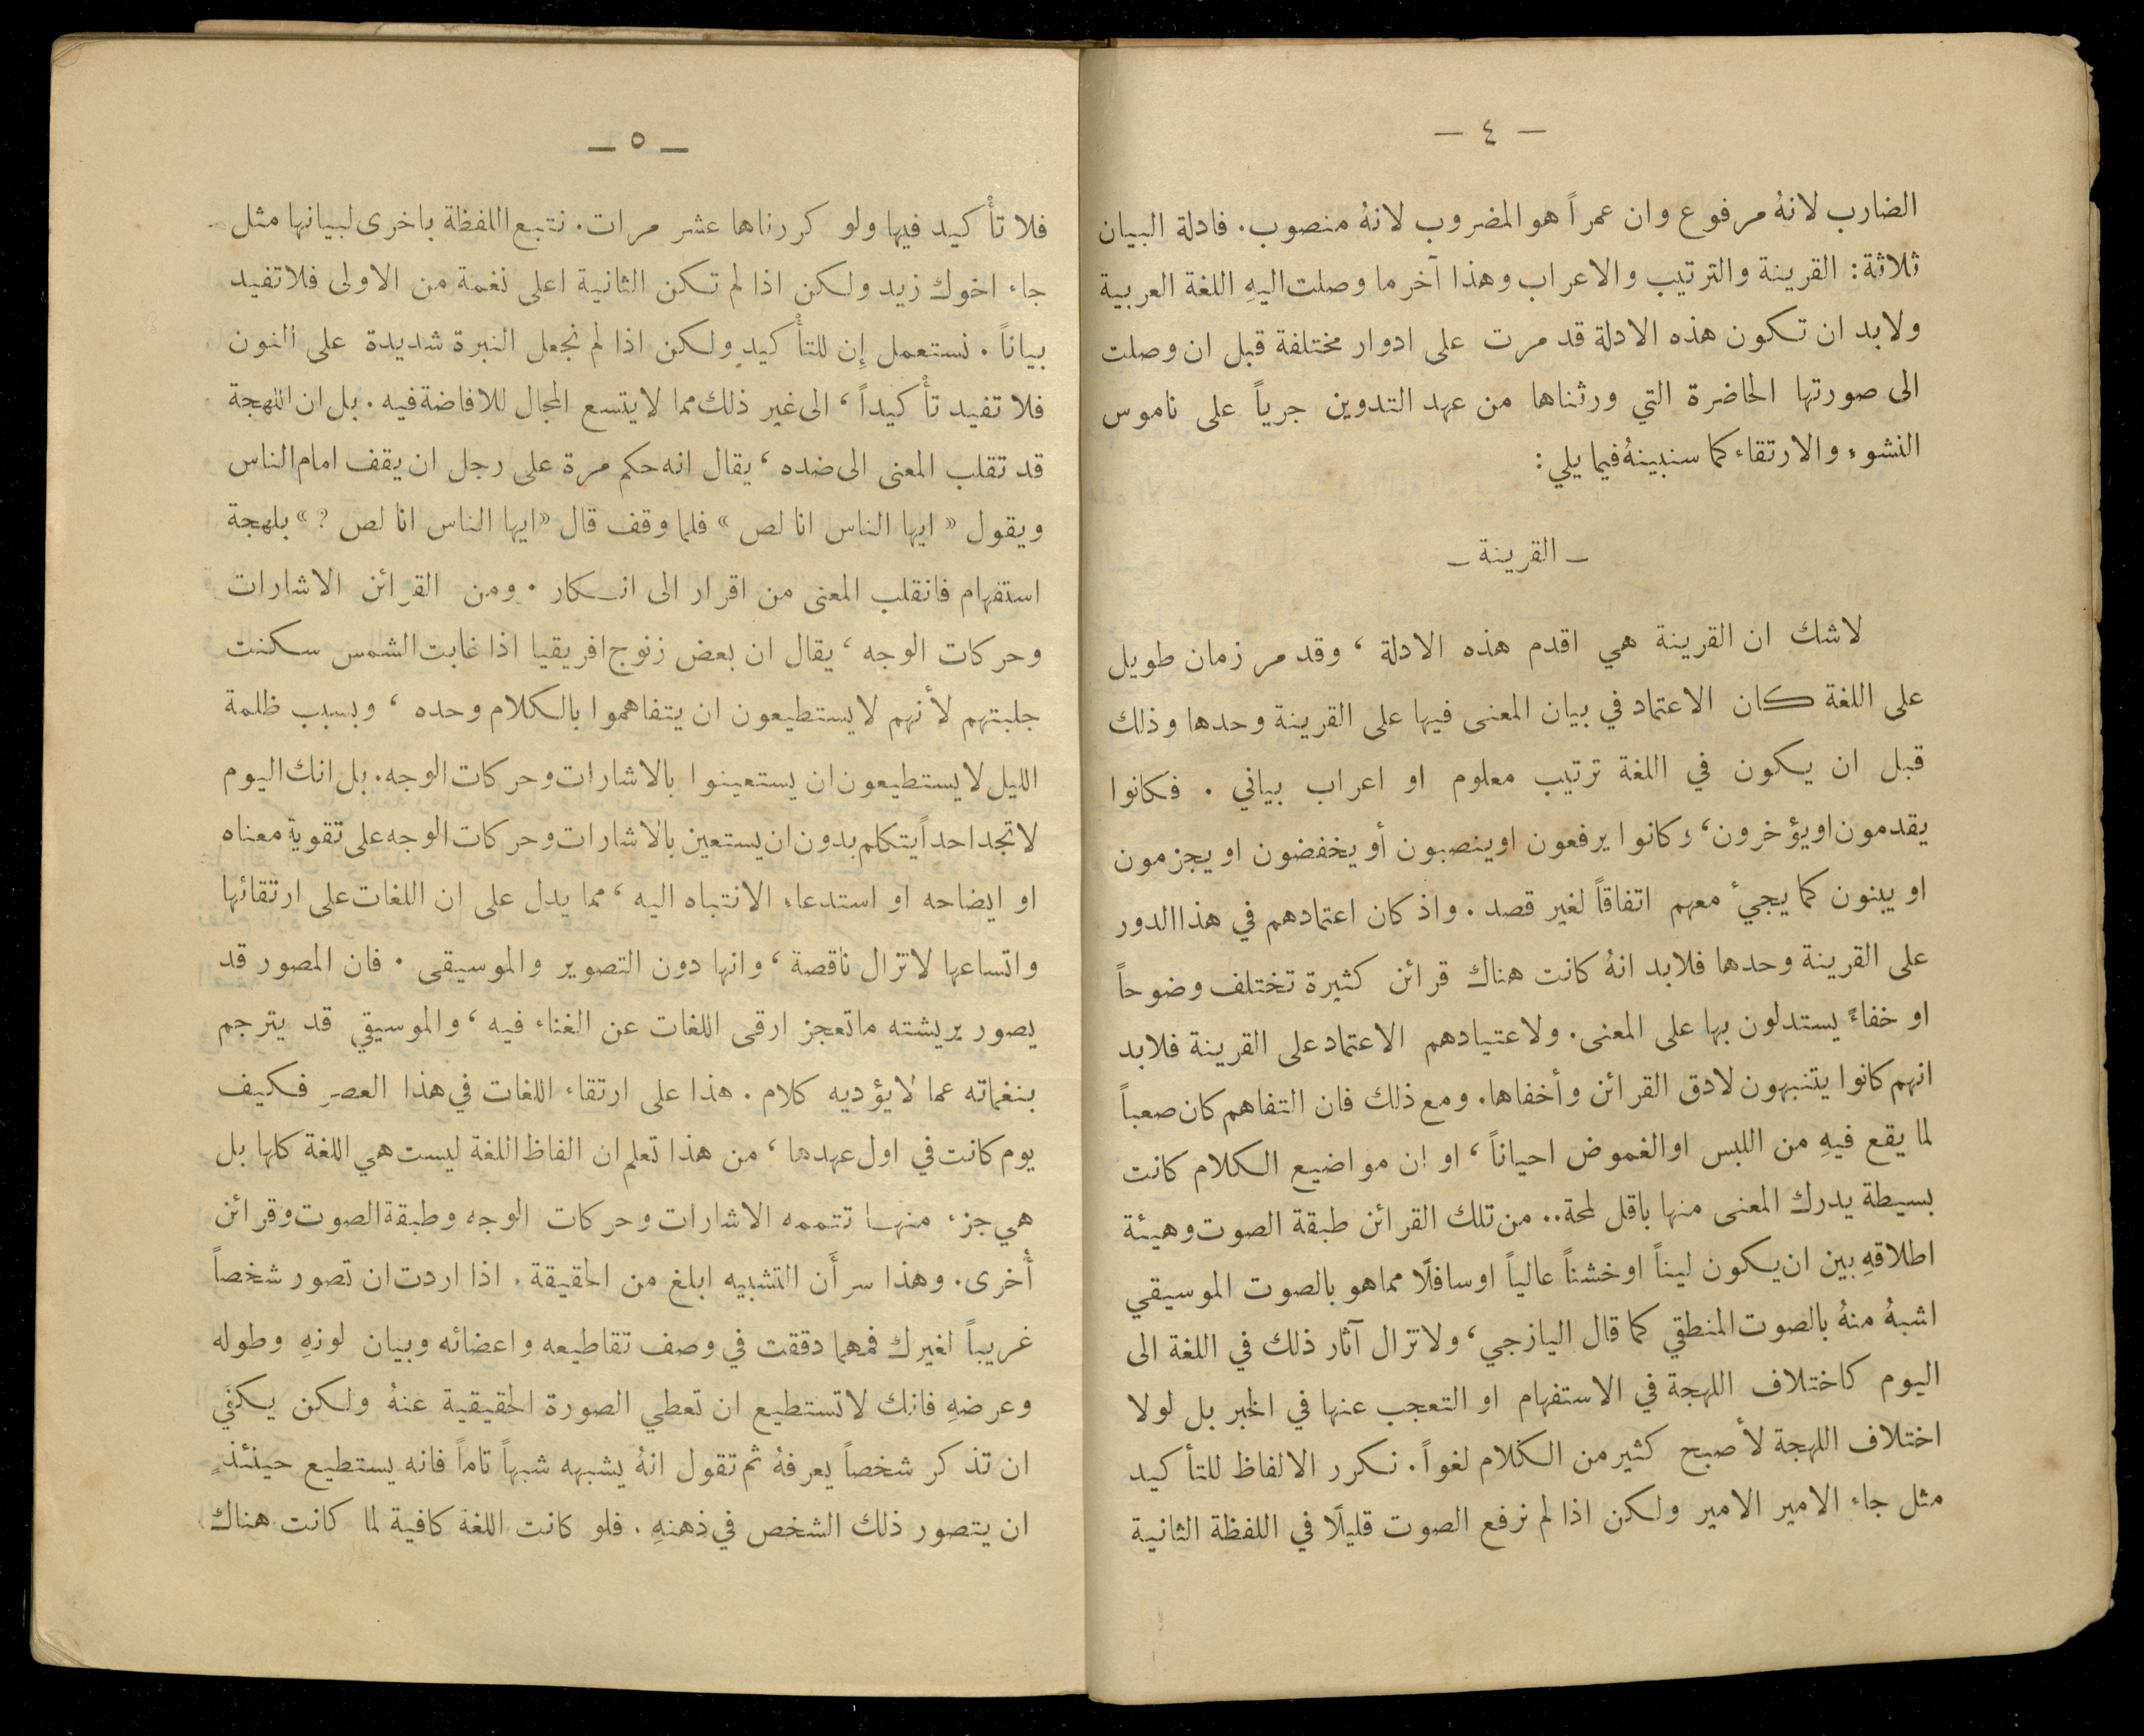 — ٤ —
الضارب لانهُ مرفوع وان عمراً هو المضروب لانهُ منصوب. فادلة البيان
ثلاثة: القرينة والترتيب والاعراب وهذا آخر ما وصلت اليهِ اللغة العربية
ولابد ان تكون هذه الادلة قد مرت على ادوار مختلفة قبل ان وصلت
الى صورتها الحاضرة التي ورثناها من عهد التدوين جرياً على ناموس
النشوء والارتقاء كما سنبينهُ فيما يلي:
– القرينة –
لاشك ان القرينة هي اقدم هذه الادلة ، وقد مر زمان طويل
على اللغة كان الاعتماد في بيان المعنى فيها على القرينة وحدها وذلك
قبل ان يكون في اللغة ترتيب معلوم او اعراب بياني . فكانوا
يقدمون او يؤخرون، وكانوا يرفعون او ينصبون أو يخفضون او يجزمون
او يبنون كما يجيءُ معهم اتفاقاً لغير قصد . واذ كان اعتمادهم في هذا الدور
على القرينة وحدها فلابد انهُ كانت هناك قرائن كثيرة تختلف وضوحاً
او خفاءً يستدلون بها على المعنى. ولاعتيادهم الاعتماد على القرينة فلابد
انهم كانوا يتنبهون لادق القرائن وأخفاها. ومع ذلك فان التفاهم كان صعباً
لما يقع فيهِ من اللبس او الغموض احياناً ، او ان مواضيع الكلام كانت
بسيطة يدرك المعنى منها باقل لمحة.. من تلك القرائن طبقة الصوت وهيئة
اطلاقهِ بين ان يكون ليناً او خشناً عالياً او سافلًا مما هو بالصوت الموسيقي
اشبهُ منهُ بالصوت المنطقي كما قال اليازجي، ولاتزال آثار ذلك في اللغة الى
اليوم كاختلاف اللهجة في الاستفهام او التعجب عنها في الخبر بل لولا
اختلاف اللهجة لأصبح كثير من الكلام لغواً. نكرر الالفاظ للتأكيد
مثل جاء الامير الامير ولكن اذا لم نرفع الصوت قليلًا في اللفظة الثانية
— ٥ —
فلا تأْكيد فيها ولو كررناها عشر مرات. نتبع اللفظة باخرى لبيانها مثل
جاء اخوك زيد ولكن اذا لم تكن الثانية اعلى نغمة من الاولى فلا تفيد
بياناً . نستعمل إِن للتأْكيد ولكن اذا لم نجعل النبرة شديدة على النون
فلا تفيد تأْكيداً ، الى غير ذلك مما لا يتسع المجال للافاضة فيه . بل ان اللهجة
قد تقلب المعنى الى ضده ، يقال انه حكم مرة على رجل ان يقف امام الناس
ويقول « ايها الناس انا لص » فلما وقف قال «ايها الناس انا لص ؟ » بلهجة
استفهام فانقلب المعنى من اقرار الى انكار . ومن القرائن الاشارات
وحركات الوجه ، يقال ان بعض زنوج افريقيا اذا غابت الشمس سكنت
جلبتهم لأنهم لا يستطيعون ان يتفاهموا بالكلام وحده ، وبسبب ظلمة
الليل لا يستطيعون ان يستعينوا بالاشارات وحركات الوجه. بل انك اليوم
لا تجد احداً يتكلم بدون ان يستعين بالاشارات وحركات الوجه على تقوية معناه
او ايضاحه او استدعاء الانتباه اليه ، مما يدل على ان اللغات على ارتقائها
واتساعها لاتزال ناقصة ، وانها دون التصوير والموسيقى . فان المصور قد
يصور بريشته ما تعجز ارقى اللغات عن الغناء فيه ، والموسيقي قد يترجم
بنغماته عما لا يؤديه كلام . هذا على ارتقاء اللغات في هذا العصر فكيف
يوم كانت في اول عهدها ، من هذا تعلم ان الفاظ اللغة ليست هي اللغة كلها بل
هي جزء منها تتممه الاشارات وحركات الوجه وطبقة الصوت وقرائن
أُخرى. وهذا سر أَن التشبيه ابلغ من الحقيقة . اذا اردت ان تصور شخصاً
غريباً لغيرك فمهما دققت في وصف تقاطيعه واعضائه وبيان لونهِ وطوله
وعرضهِ فانك لاتستطيع ان تعطي الصورة الحقيقية عنهُ ولكن يكفي
ان تذكر شخصاً يعرفهُ ثم تقول انهُ يشبهه شبهاً تاماً فانه يستطيع حينئذٍ
ان يتصور ذلك الشخص في ذهنهِ . فلو كانت اللغة كافية لما كانت هناك